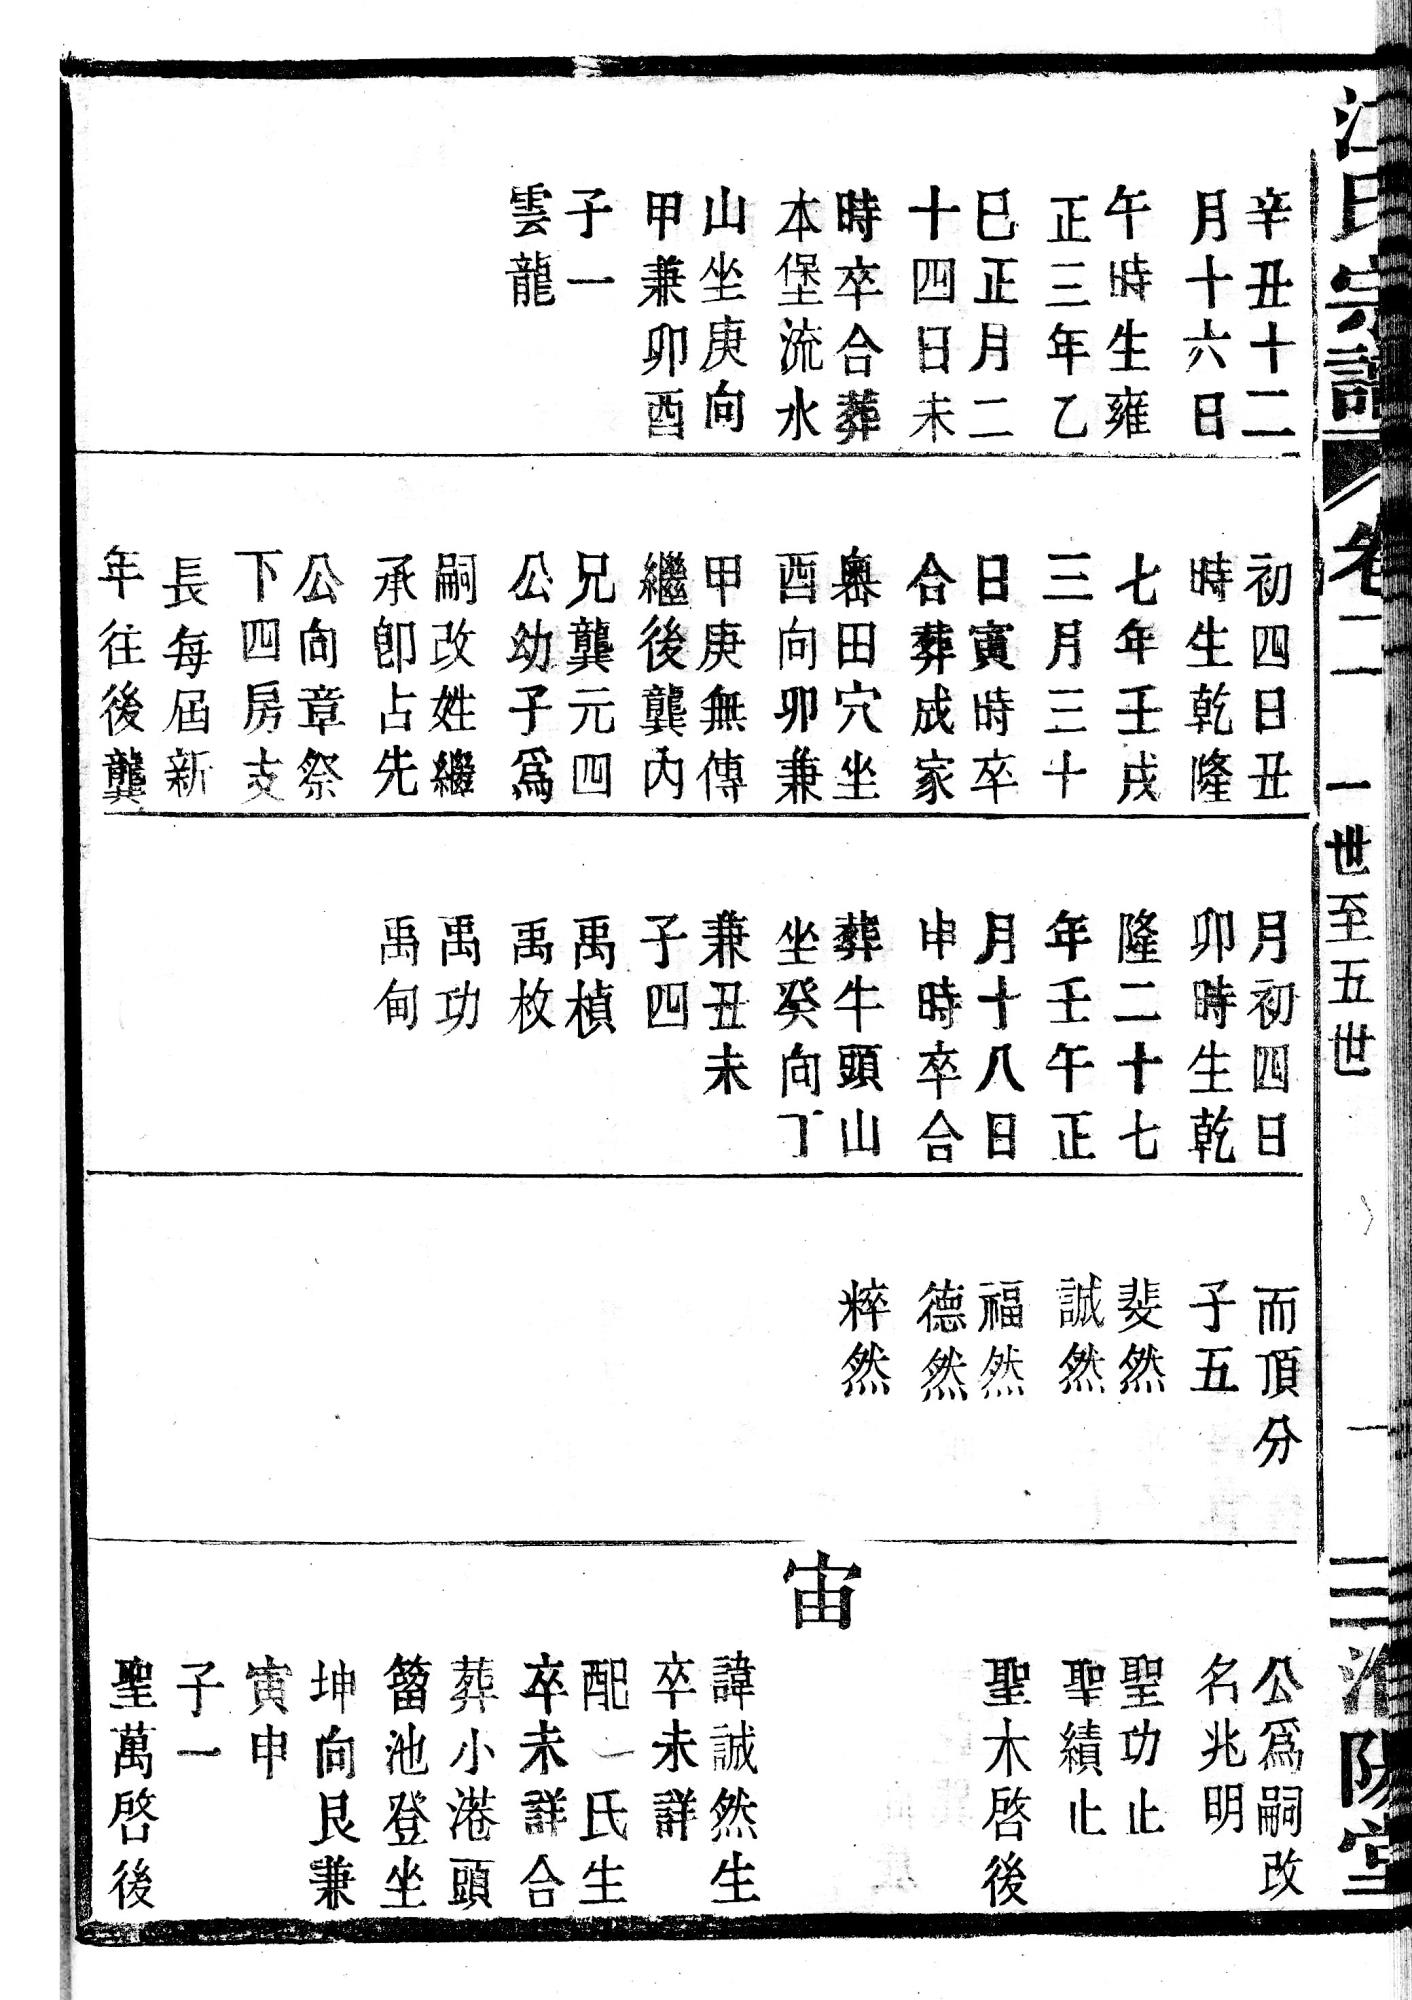 江氏宗譜
卷二
一世至五世
一
三
淮陽堂
辛丑十二
月十六日
午時生雍
正三年乙
巳正月二
十四日未
時卒合葬
本堡流水
山坐庚向
甲兼卯酉
子一
雲龍
初四日丑
時生乾隆
七年壬戌
三月三十
日寅時卒
合葬成家
墺田穴坐
酉向卯兼
甲庚無傳
繼後龔內
兄龔元四
公幼子爲
嗣改姓繼
承卽占先
公向章祭
下四房支
長每屆新
年往後龔
月初四日
卯時生乾
隆二十七
年壬午正
月十八日
申時卒合
葬牛頭山
坐癸向丁
兼丑未
子四
禹楨
禹枚
禹功
禹甸
而頂分
子五
斐然
誠然
福然
德然
粹然
公爲嗣改
名兆明
聖功止
聖績止
聖木啓後
宙
諱誠然生
卒未詳
配一氏生
卒未詳合
葬小港頭
筲池登坐
坤向艮兼
寅申
子一
聖萬啓後